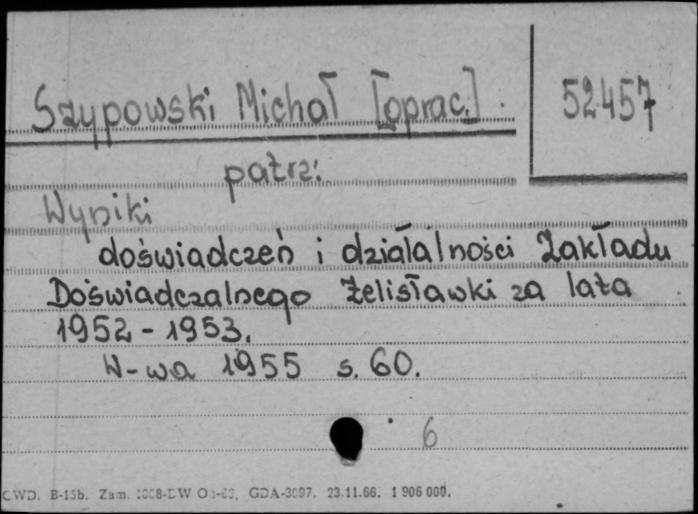 Szypowski Michał [oprac.] .
52457
patrz:
Wyniki
doświadczeń i działalności Zakładu
Doświadczalnego Żelisławki za lata
1952-1953.
W-wa 1955 s. 60.
6
CWD. B-15b. Zam. GDA-3097. 23.11.66. 1 906 000.